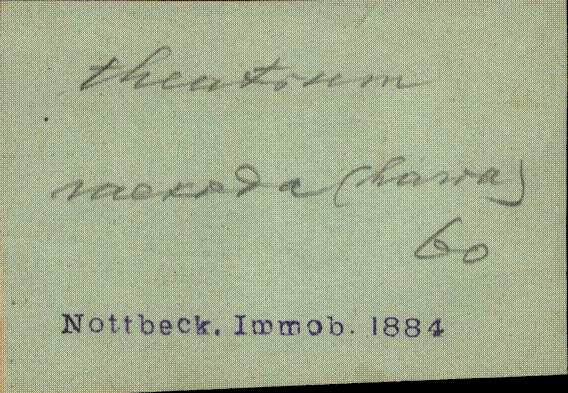 theatrum
raekoda (harva)
60
Nottbeck. Immob. 1884